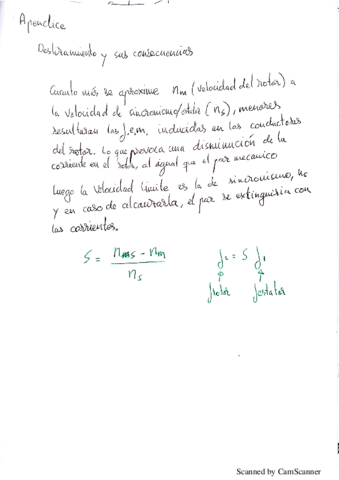 Apendice
Deslizamiento y sus consecuencias
Cuanto más se aproxime nm (velocidad del rotor) a
la velocidad de sincronismo/ (ns), menores
resultaran las f.e.m. inducidas en los conductores
del rotor. Lo que provoca una disminución de la
corriente en el rotor, al igual que el par mecanico
Luego la velocidad limite es la de sincronismo,
y en caso de alcanzarla, el par se extinguiría con
las corrientes.
S = nms - nm / ns
f2 = S f1
frotor festator
Scanned by CamScanner